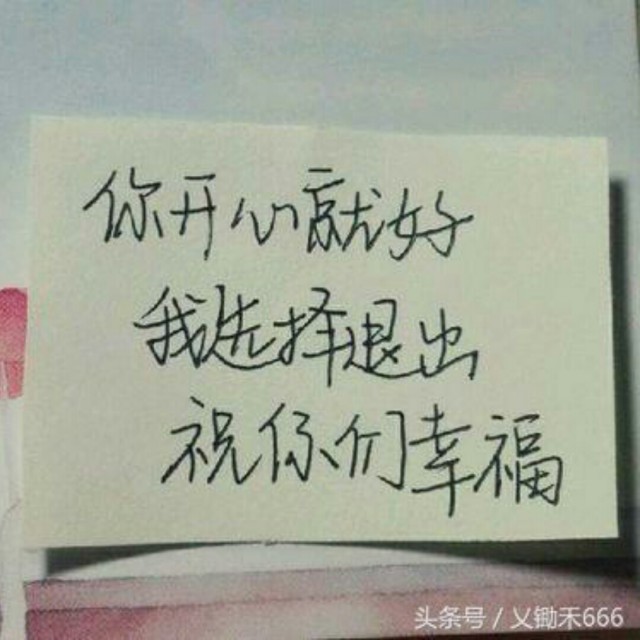 你开心就好
我选择退出
祝你们幸福
头条号 / 乂锄禾666